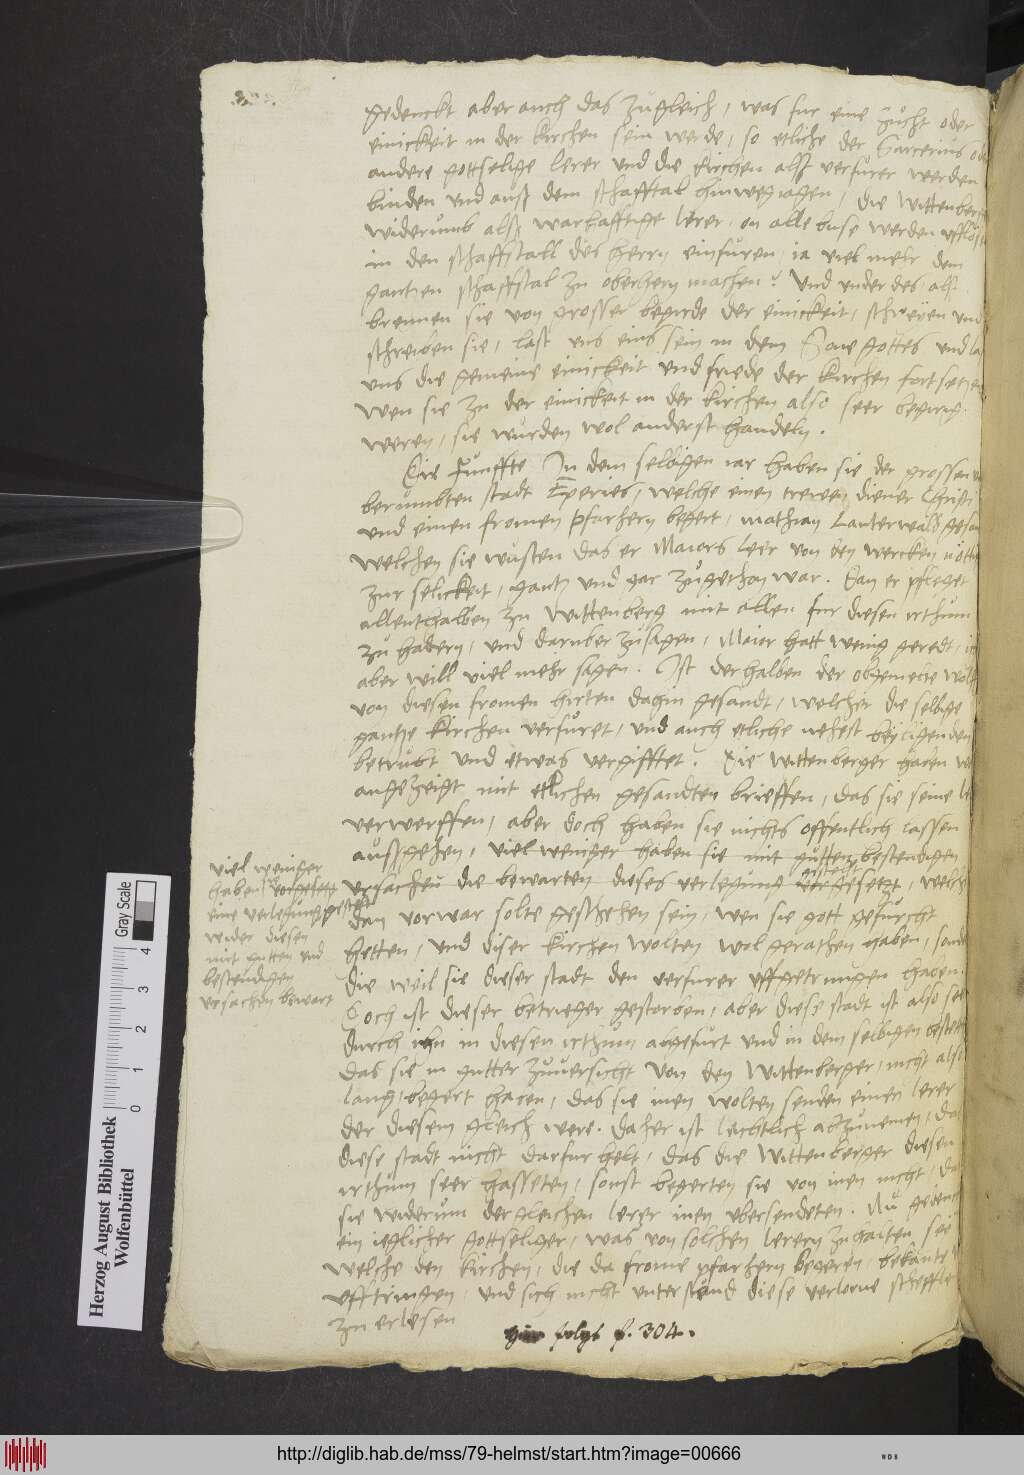 gedenckt aber auch das zugleich, was fur eine zucht oder
einickeit in der kirchen sein werde, so etliche der Sarcerius
andere gottselige lerer und die kirchen alß verfurer werden
binden und auß dem schafftal hinweg iagen, die Wittenberger
widerumb alß warhafftige lerer, on alle buse werden
in den schaffstall des herrn einfuren, ia viel mehr dem
gantzen schaffstal zu oberhern machen? Und under des alß
brennen sie von grosser begirde der einickeit, schreien und
schreiben sie, last uns eins sein in dem Sone gottes und
uns die gemeine einickeit und friede der kirchen fortsetzen
wen sie zu der einickeit in der kirchen also seer begirig
weren, sie wurden wol anderst handeln.
Die funffte In dem selbigen iar haben sie der grossen
berumbten stadt Eperies, welche einen trewen diener Christi
und einen fromen pfarhern begert, mathiam Lauterwalß
welchen sie wusten das er Maiors leer von den wercken
zur selickeit, gantz und gar zugethan war. Dan er pfleget
allenthalben zu Wittenberg mit allen fur diesen irthum
zu hadern, und daruber zusagen, Maior hatt wenig geredt,
aber will viel mehr sagen. Ist derhalben der obgemelte
von diesen fromen hirten dahin gesandt, welcher die selbige
gantze kirchen verfuret, und auch etliche nehest beyligenden
betrubt und etwas vergifftet. Die Wittenberger haben
angezeigt mit etlichen gesandten brieffen, das sie seine
verwerffen, aber doch haben sie nichts offentlich lassen
außgehen, viel weniger haben sie mit gutten bestendigen
ursachen die bewarten dieses verlegung gesetzt, welche
dan vorwar solte geschehen sein, wen sie gott gefurcht
hetten, und diser kirchen wolten wol gerathen haben,
die weil sie dieser stadt den verfurer uffgetrungen haben.
Doch ist dieser betrieger gestorben, aber diese stadt ist also
durch ihn in diesen irthum abgefurt und in dem selbigen
das sie in gutter zuversicht von den Wittenberger, nicht
lang, begert haben, das sie inen wolten senden einen lerer
der diesem gleich were. Daher ist leichtlich abzunemen,
diese stadt nicht darfur helt, das die Wittenberger diesen
irthum seer hasseten, sonst begerten sie von inen nicht,
sie widerum dergleichen lerer inen ubersendeten. Nu
ein ieglicher gottseliger, was von solchen lerern zuhalten sei
welche den kirchen, die da frome pfarhern begeren,
ufftringen, und sich nicht unterstend diese verlorne
zu erlesen
viel weniger
haben
eine verlegung
wider diesen
mit gutten und
bestendigen
ursachen bewart
folgt f. 304.
Herzog August Bibliothek
Wolfenbüttel
0 1 2 3 4 Gray Scale
http://diglib.hab.de/mss/79-helmst/start.htm?image=00666